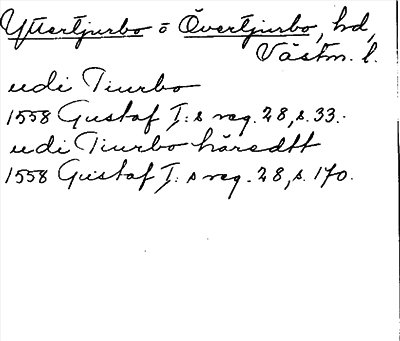 Yttertjurbo o Övertjurbo, hd,
Västm. l.
udi Tiurbo
1558 Gustaf I:s reg. 28, s. 33.
udi Tiurbo häredtt
1558 Gustaf I:s reg. 28, s. 170.